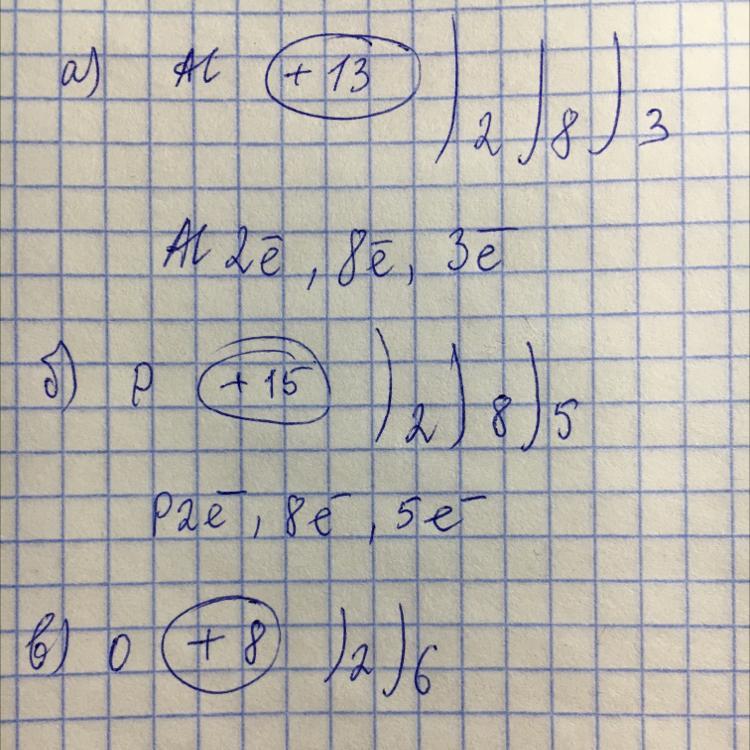 а) Al +13 )2 )8 )3
Al 2ē, 8ē, 3ē
б) P +15 )2 )8 )5
P 2e⁻, 8e⁻, 5e⁻
в) O +8 )2 )6